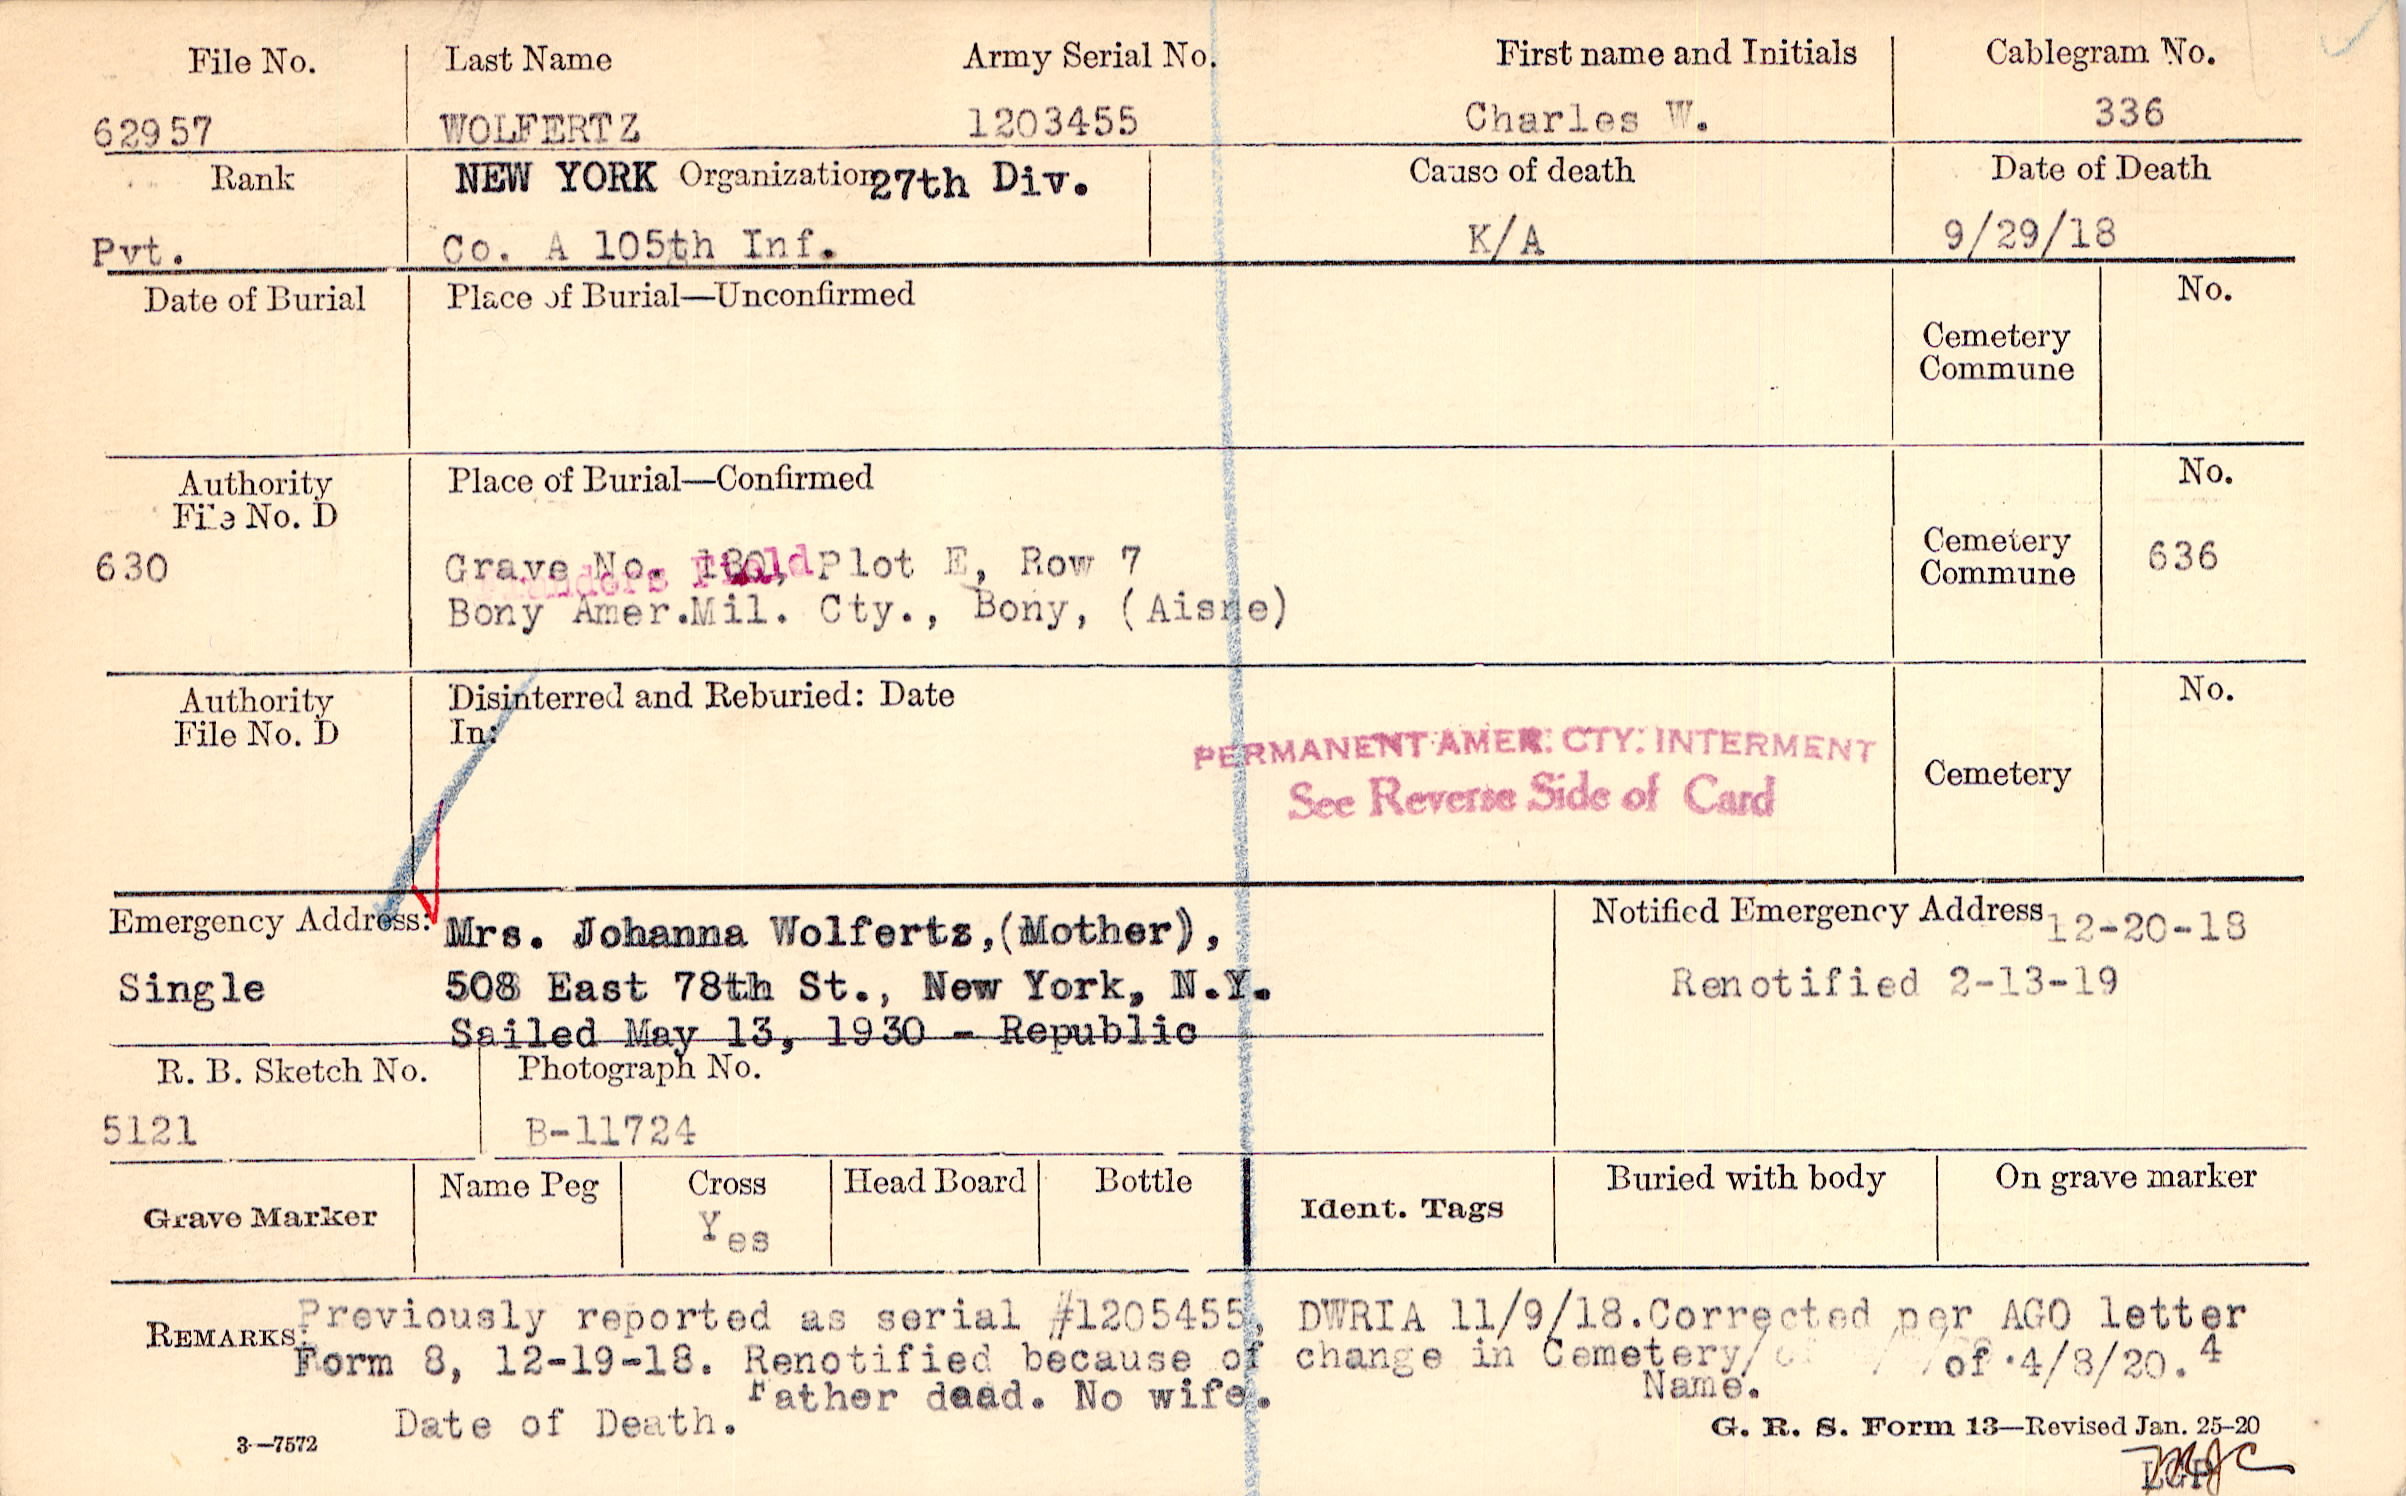 File No. Last Name Army Serial No. First name and Initials Cablegram No.
62957 WOLFERTZ 1203455 Charles W. 336
Rank NEW YORK Organization 27th Div. Cause of death Date of Death
Pvt. Co. A 105th Inf. K/A 9/29/18
Date of Burial Place of Burial—Unconfirmed No.
Cemetery
Commune
Authority Place of Burial—Confirmed No.
File No. D
630 Grave No. 180, Plot E, Row 7 Cemetery 636
Flanders Field Commune
Bony Amer.Mil. Cty., Bony, (Aisne)
Authority Disinterred and Reburied: Date No.
File No. D In:
PERMANENT AMER. CTY. INTERMENT
See Reverse Side of Card Cemetery
Emergency Address: Mrs. Johanna Wolferts,(Mother), Notified Emergency Address 12-20-18
Single 508 East 78th St., New York, N.Y. Renotified 2-13-19
Sailed May 13, 1930 - Republic
R. B. Sketch No. Photograph No.
5121 B-11724
Grave Marker Name Peg Cross Head Board Bottle Ident. Tags Buried with body On grave marker
Yes
REMARKS: Previously reported as serial #1205455, DWRIA 11/9/18.Corrected per AGO letter
Form 8, 12-19-18. Renotified because of change in Cemetery/ of 4/8/20. 4
Father dead. No wife. Name.
Date of Death.
3—7572 G. R. S. Form 13—Revised Jan. 25-20